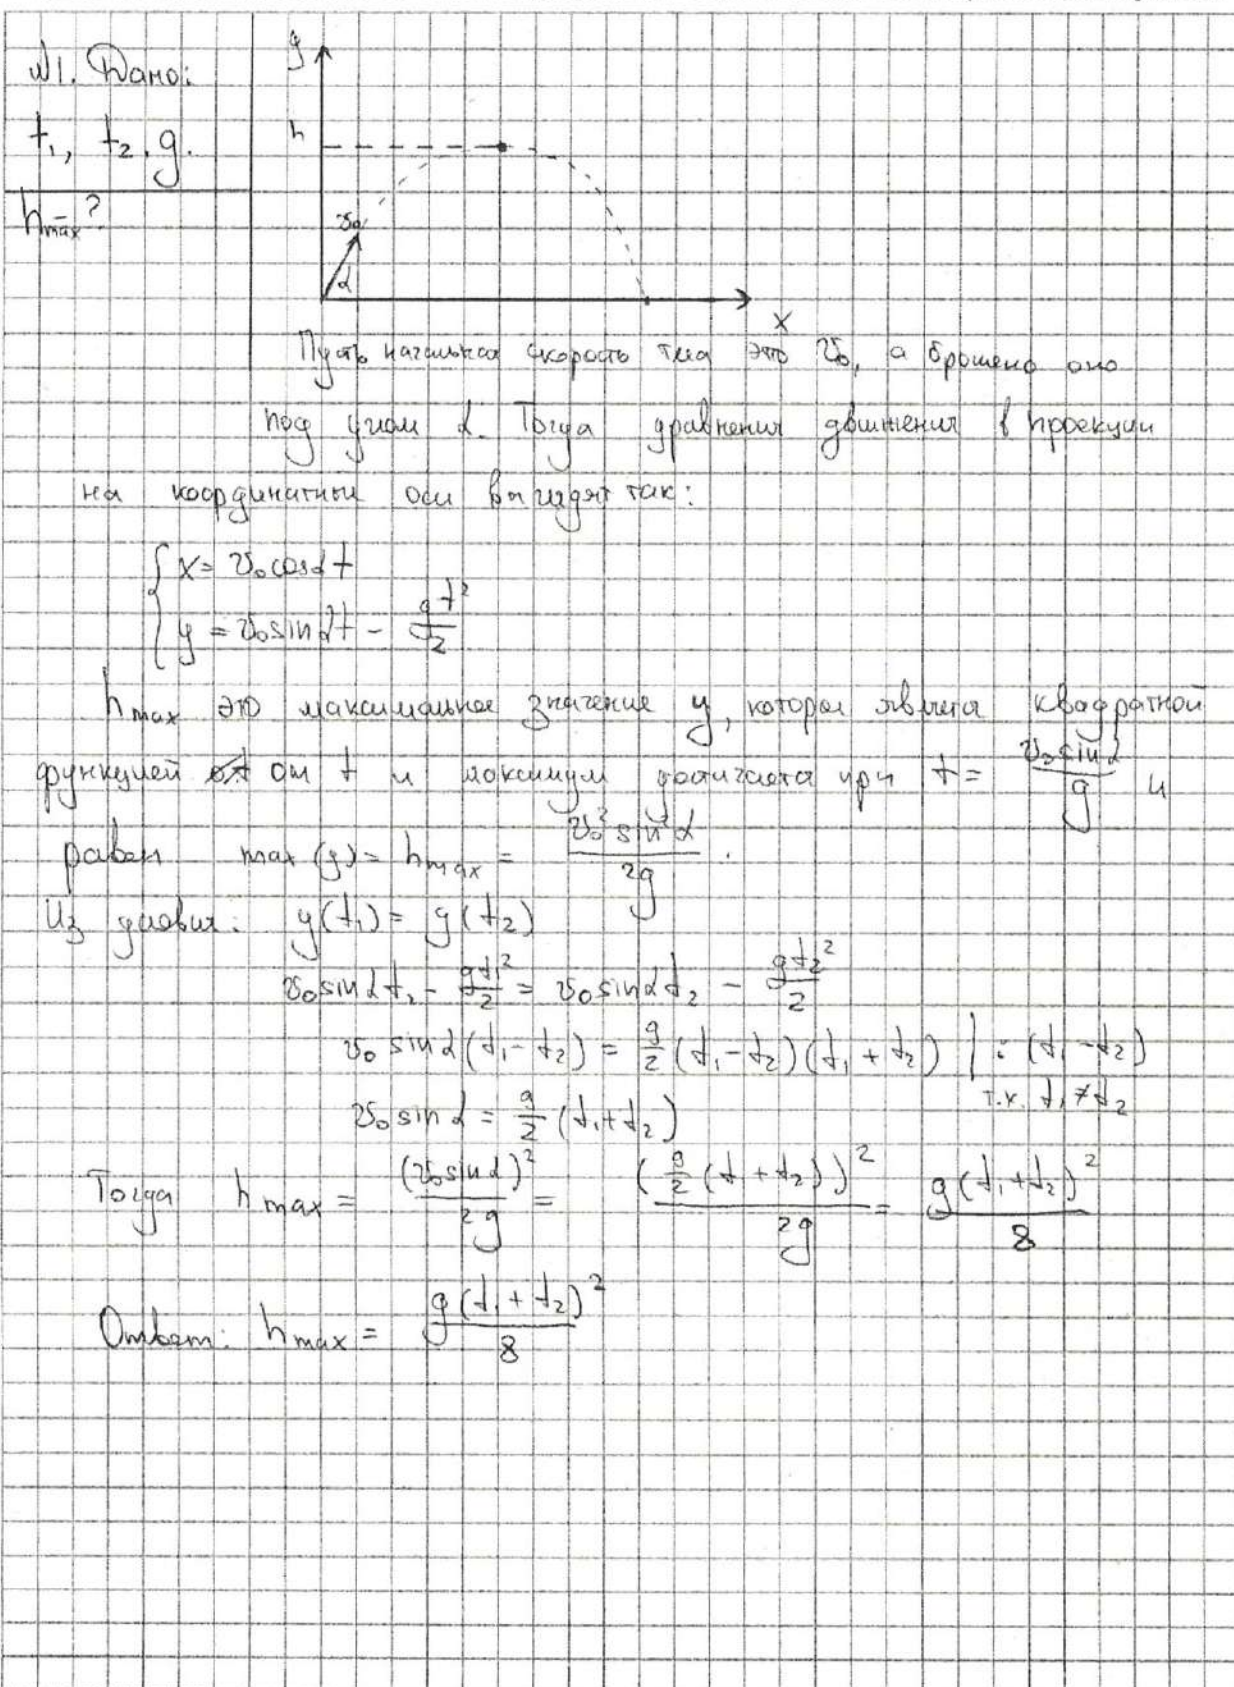 №1. Дано:
t₁, t₂, g.
h_max - ?
y
h
v₀
α
x
Пусть начальная скорость тела это v₀, а брошено оно
под углом α. Тогда уравнения движения в проекции
на координатные оси выглядят так:
{ x = v₀cosα t
y = v₀sinα t - gt²/2
h_max это максимальное значение y, которое является квадратной
функцией от t и максимум достигается при t = v₀sinα/g и
равен max(y) = h_max = v₀²sin²α/2g.
Из условия: y(t₁) = y(t₂)
v₀sinα t₁ - gt₁²/2 = v₀sinα t₂ - gt₂²/2
v₀ sinα(t₁-t₂) = g/2 (t₁-t₂)(t₁+t₂) | : (t₁-t₂)
т.к. t₁≠t₂
v₀ sinα = g/2 (t₁+t₂)
Тогда h_max = (v₀sinα)²/2g = (g/2 (t₁+t₂))²/2g = g(t₁+t₂)²/8
Ответ: h_max = g(t₁+t₂)²/8